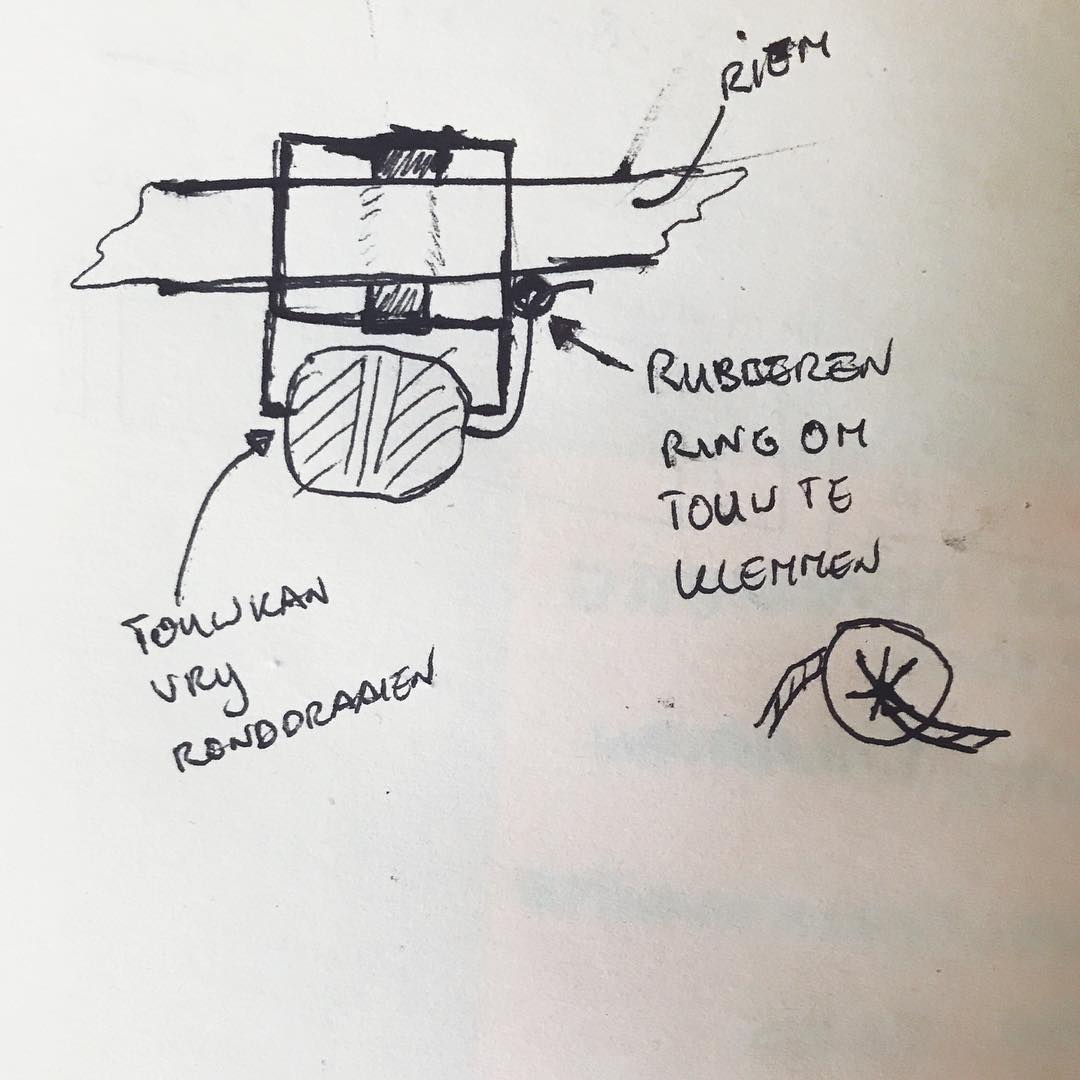 RIEM
RUBBEREN
RING OM
TOUW TE
KLEMMEN
TOUW KAN
VRY
RONDDRAAIEN